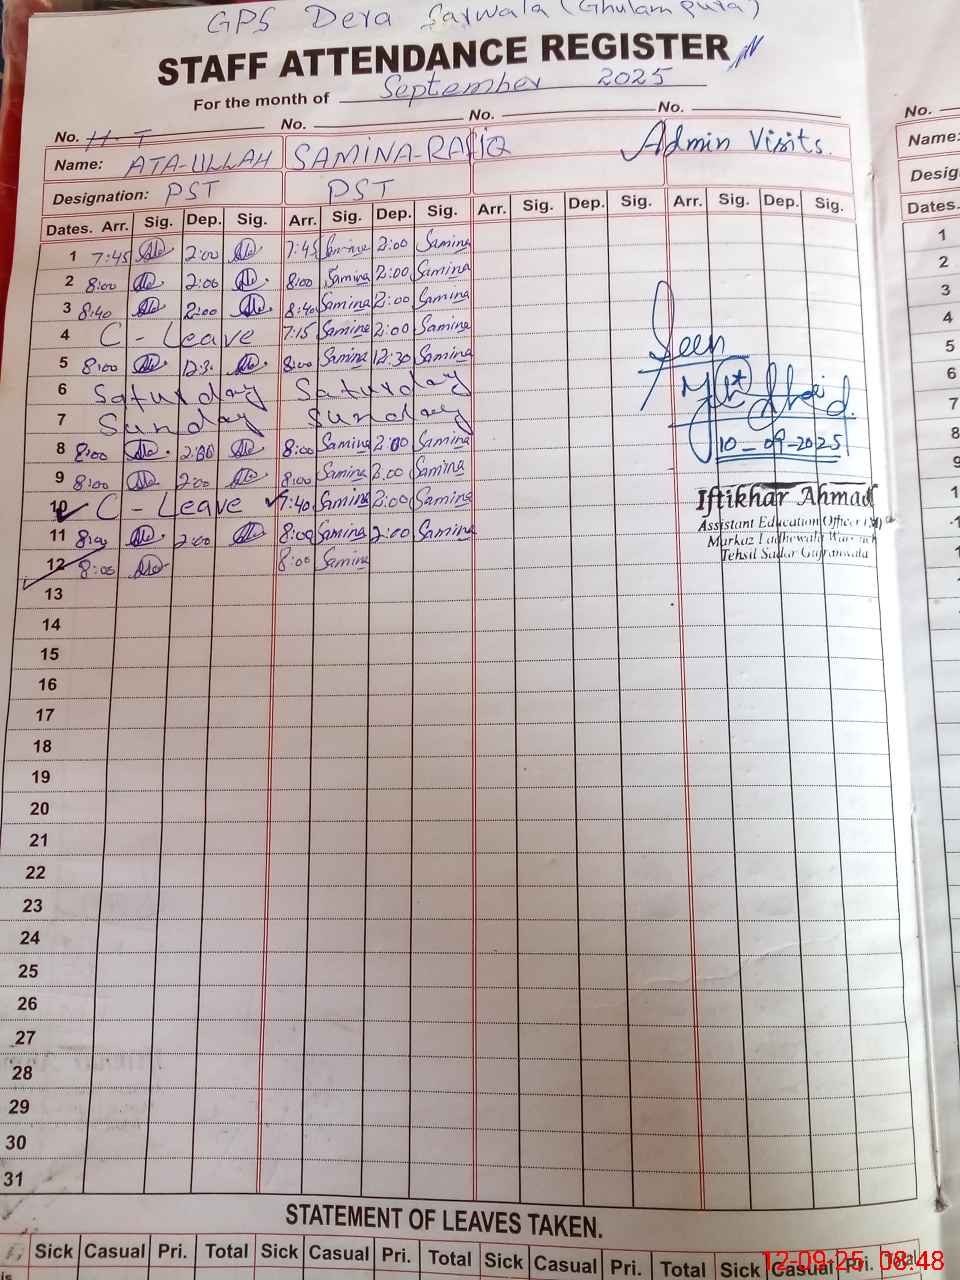 GPS Dera Sarwala (Ghulam pura)
STAFF ATTENDANCE REGISTER
For the month of September 2025
No. H-T No. No. No.
Name: ATA-ULLAH SAMINA-RAFIQ Admin Visits.
Designation: PST PST
Dates. Arr. Sig. Dep. Sig. Arr. Sig. Dep. Sig. Arr. Sig. Dep. Sig. Arr. Sig. Dep. Sig.
1 7:45 2:00 7:45 Samina 2:00 Samina
2 8:00 2:00 8:00 Samina 2:00 Samina
3 8:40 2:00 8:40 Samina 2:00 Samina
4 C - Leave 7:15 Samina 2:00 Samina
5 8:00 12:30 8:00 Samina 12:30 Samina
6 Saturday Saturday
7 Sunday Sunday
8 8:00 2:00 8:00 Samina 2:00 Samina
9 8:00 2:00 8:00 Samina 2:00 Samina
10 C - Leave 7:40 Samina 2:00 Samina
11 8:00 2:00 8:00 Samina 2:00 Samina
12 8:00 8:00 Samina
Seen
10-09-2025
Iftikhar Ahmad
Assistant Education Officer (M)
Markaz Ladhewala Warraich
Tehsil Sadar Gujranwala
13
14
15
16
17
18
19
20
21
22
23
24
25
26
27
28
29
30
31
STATEMENT OF LEAVES TAKEN.
Sick Casual Pri. Total Sick Casual Pri. Total Sick Casual Pri. Total Sick Casual Pri. Total
12-09-25 08:48
No.
Name:
Desig
Dates.
1
2
3
4
5
6
7
8
9
1
1
1